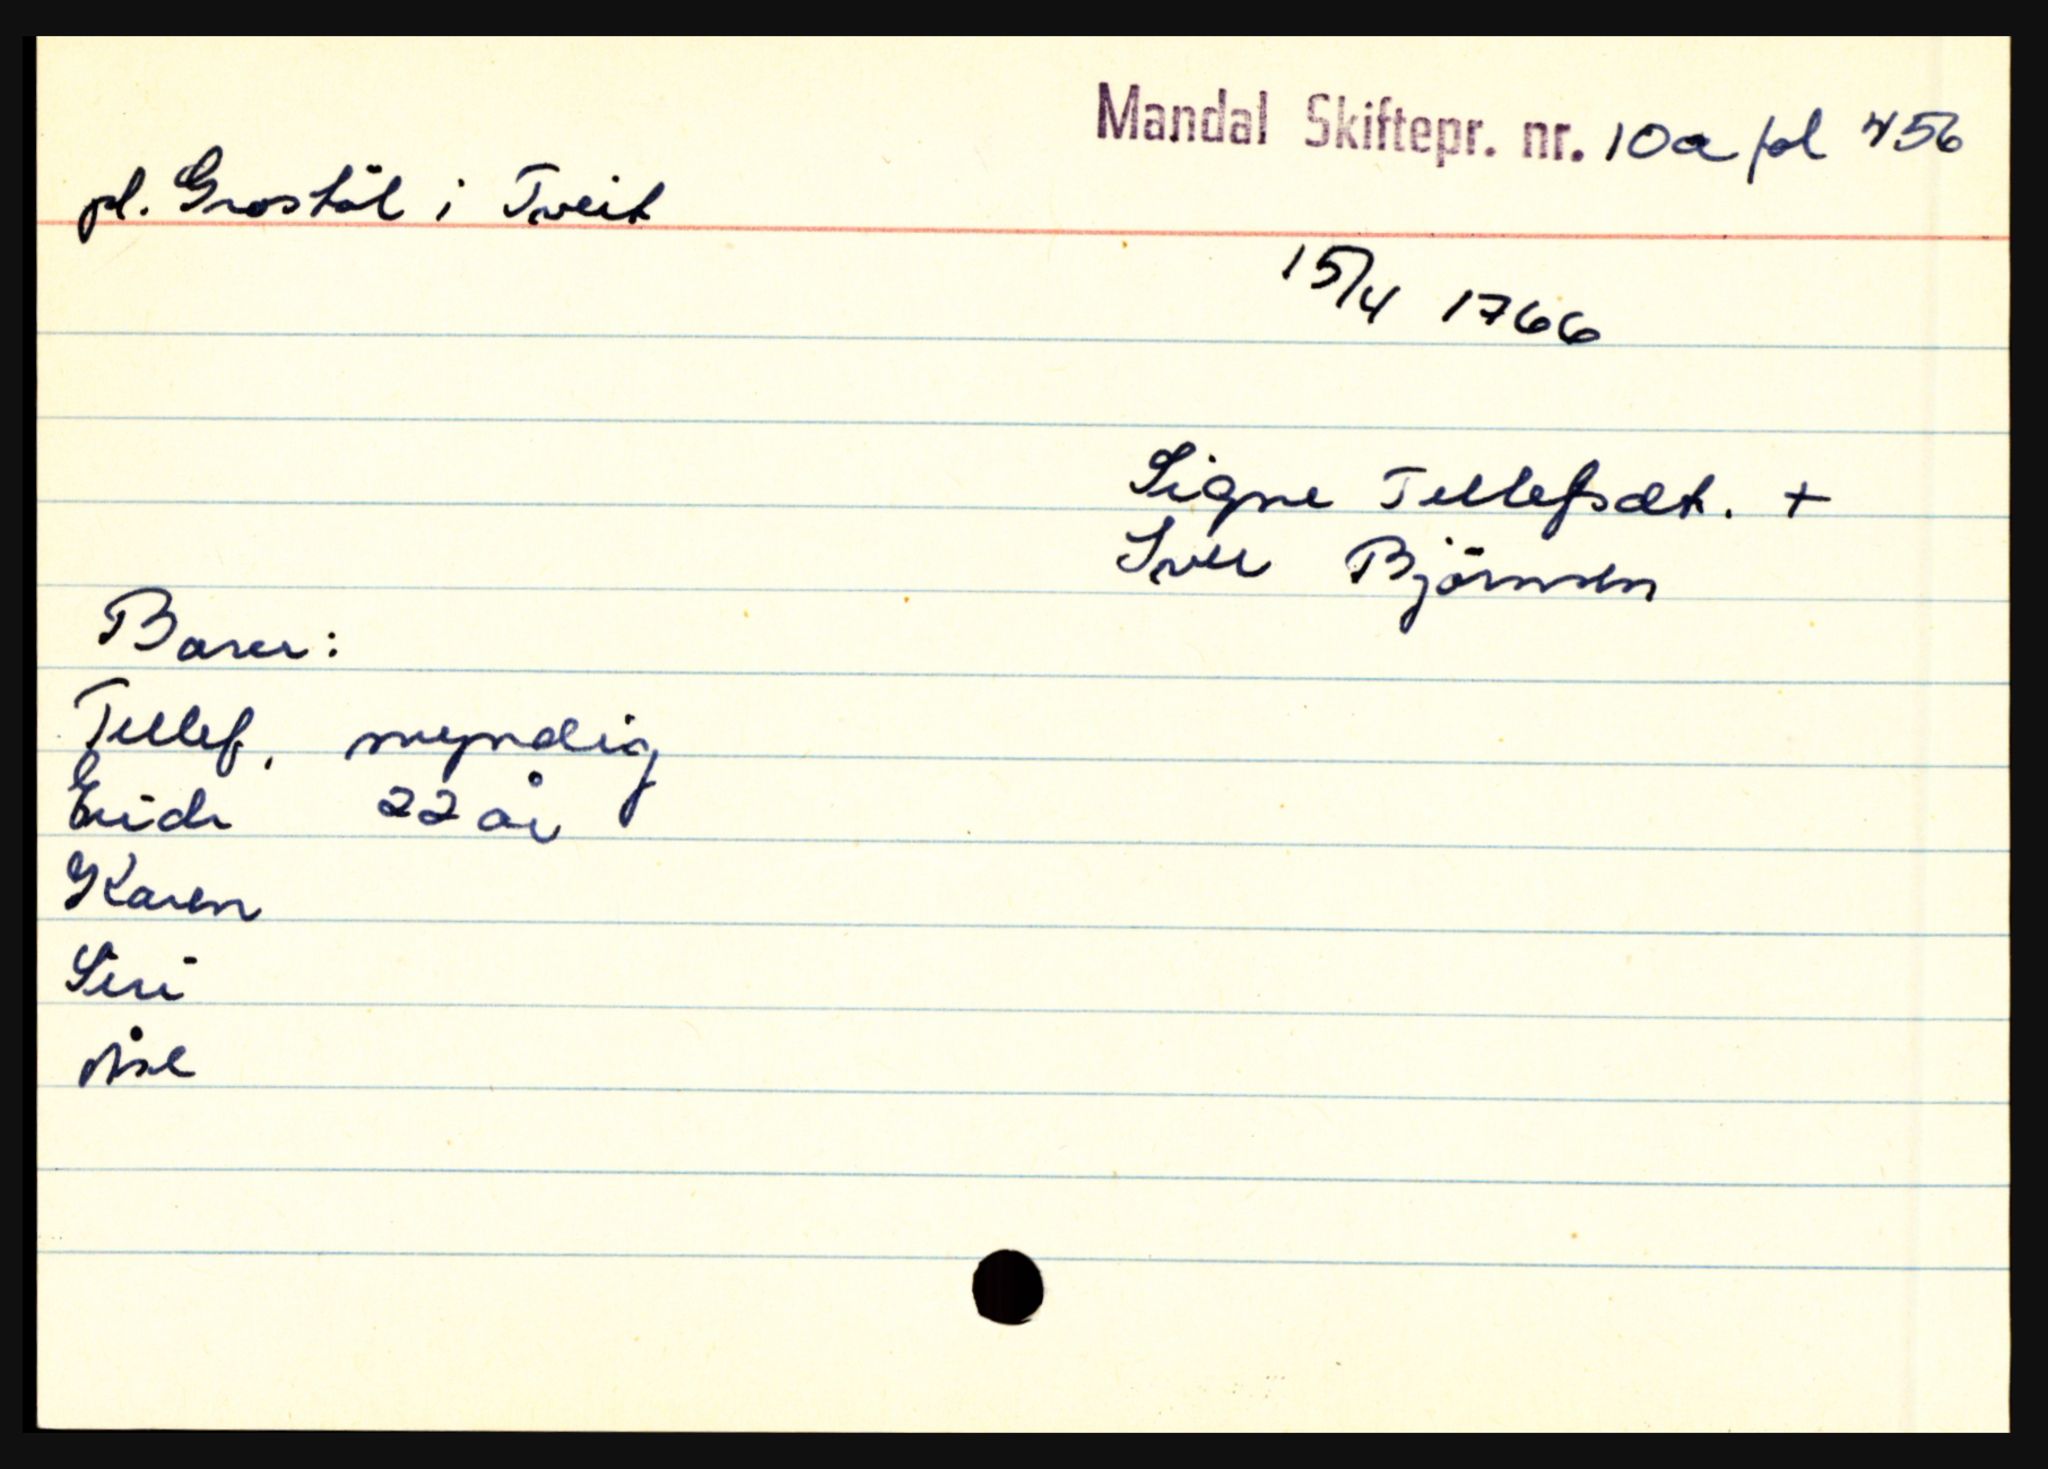 Mandal Skiftepr. nr. 10a fol 456
pl. Grostöl i Tveit
15/4 1766
Signe Tellefsdt. +
Iver Björnsen
Barer:
Tellef, myndig
Endr 22 år
Karen
Siri
Åse